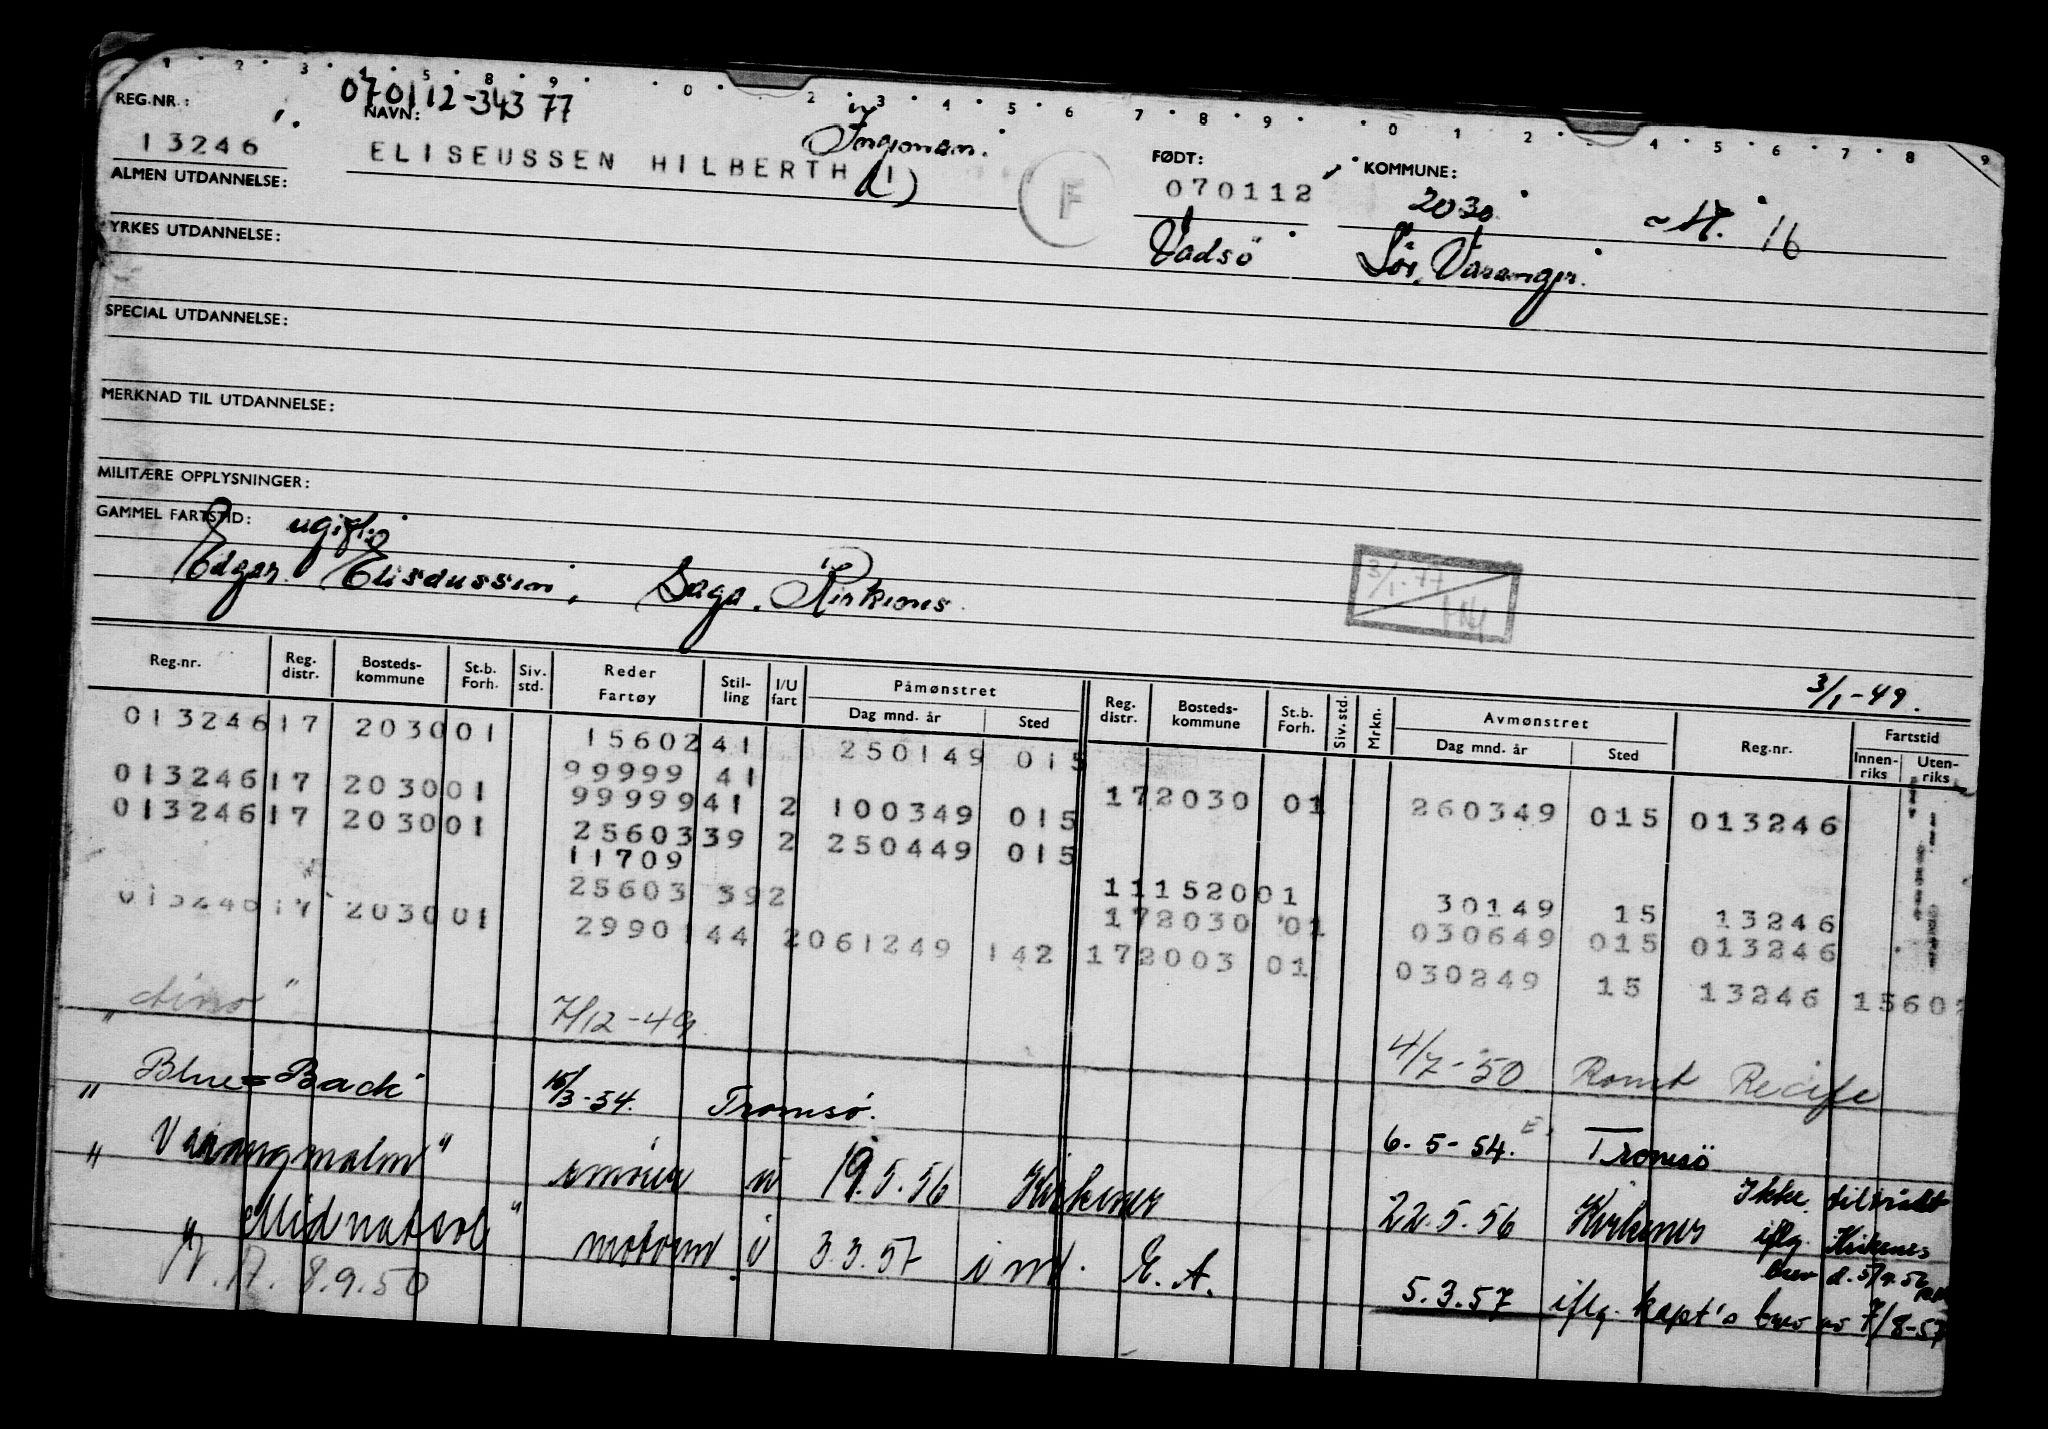 1 2 3 4 5 8 9 0 2 3 4 5 6 7 8 9 0 1 2 4 5 6 7 8 9
REG.NR.: 070112-34377
NAVN: FØDT: KOMMUNE:
13246 ELISEUSSEN HILBERTH (I) F 070112 2030 16
ALMEN UTDANNELSE: Vadsö Sör Varanger.
YRKES UTDANNELSE:
SPECIAL UTDANNELSE:
MERKNAD TIL UTDANNELSE:
MILITÆRE OPPLYSNINGER:
GAMMEL FARTSTID: ugift
Edgar Eliseussen, Saga. Kirkenes
3/1-77
3/1-49.
Reg.nr. Reg. distr. Bosteds- kommune St.b. Forh. Siv. std. Reder Fartøy Stil- ling I/U fart Påmønstret Dag mnd. år Sted Reg. distr. Bosteds- kommune St.b. Forh. Siv. std. Mrkn. Avmønstret Dag mnd. år Sted Reg.nr. Fartstid Innen- riks Uten- riks
013246 17 2030 01 15602 41 250149 015
99999 41
013246 17 2030 01 99999 41 2 100349 015 17 2030 01 260349 015 013246
013246 17 2030 01 25603 39 2 250449 015
11709
25603 39 2 11 1520 01 30149 15 13246
17 2030 01 030649 015 013246
013246 17 2030 01 2990 44 2 061249 142 17 2003 01 030249 15 13246 1560
" 7/12-49. 4/7-50 Recife
" Blue-Back" 15/3-54. Tromsö. 6-5-54. Tromsö
" Varangmalm" smörer u 19.5.56 Kirkenes 22.5.56 Kirkenes Ikke tiltrådt
iflg. Kirkenes
brev d.
" Midnatsol" motorm i 3.3.57 E.A. 5.3.57 iflg. kapt's brev av 7/8-57
8.9.50